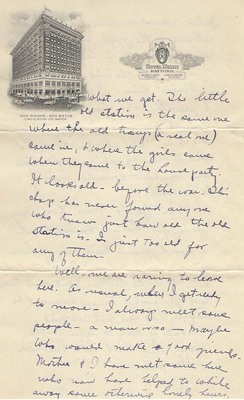 HOTEL MIAMI
DAYTON
600 ROOMS - 600 BATHS
what we get. The little
old station is the same one
where the old tramp (a real one)
came in, & where the girls came
when they came to the house party.
It looks old - before the war. This
chap has never found anyone
who knows just how old the old
station is. I just too old for
any of them -
Well - we are raring to leave
here. As usual, when I get ready
to move - I always meet some
people - a man now - maybe
who would make a good friend.
Mother & I have met some here
who now have helped to while
away some otherwise lonely hours.